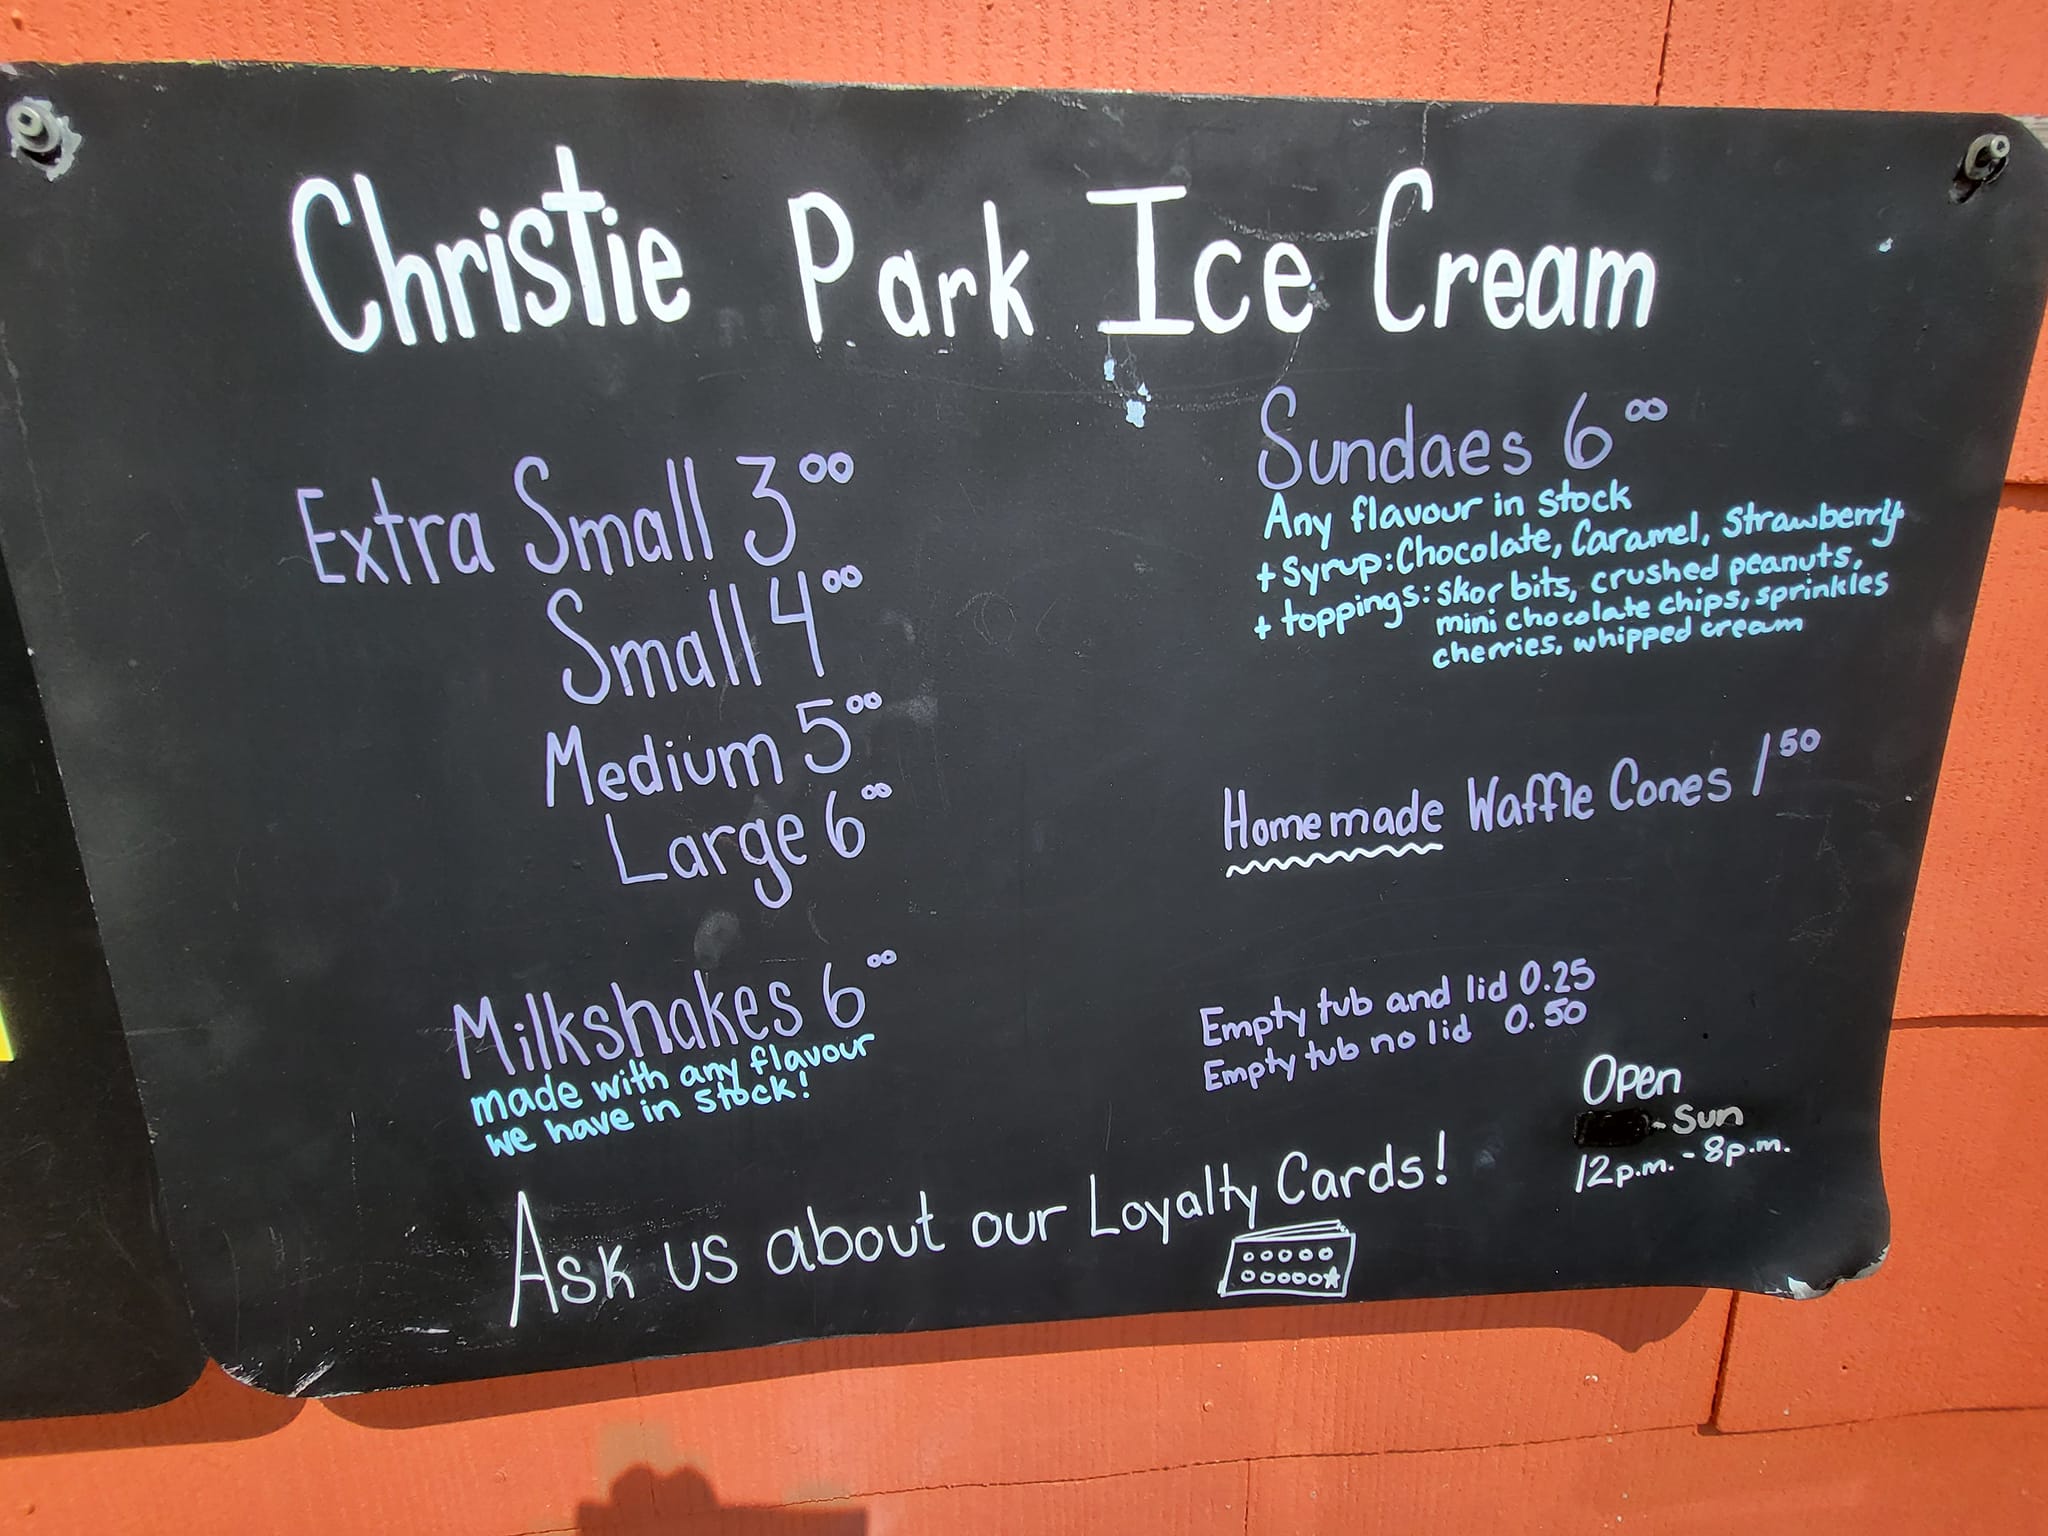 Christie Park Ice Cream
Extra Small 3⁰⁰
Small 4⁰⁰
Medium 5⁰⁰
Large 6⁰⁰
Milkshakes 6⁰⁰
made with any flavour
we have in stock!
Sundaes 6⁰⁰
Any flavour in stock
+ Syrup: Chocolate, Caramel, Strawberry
+ toppings: skor bits, crushed peanuts,
mini chocolate chips, sprinkles
cherries, whipped cream
Homemade Waffle Cones 1⁵⁰
Empty tub and lid 0.25
Empty tub no lid 0.50
Open
- Sun
12p.m. - 8p.m.
Ask us about our Loyalty Cards!